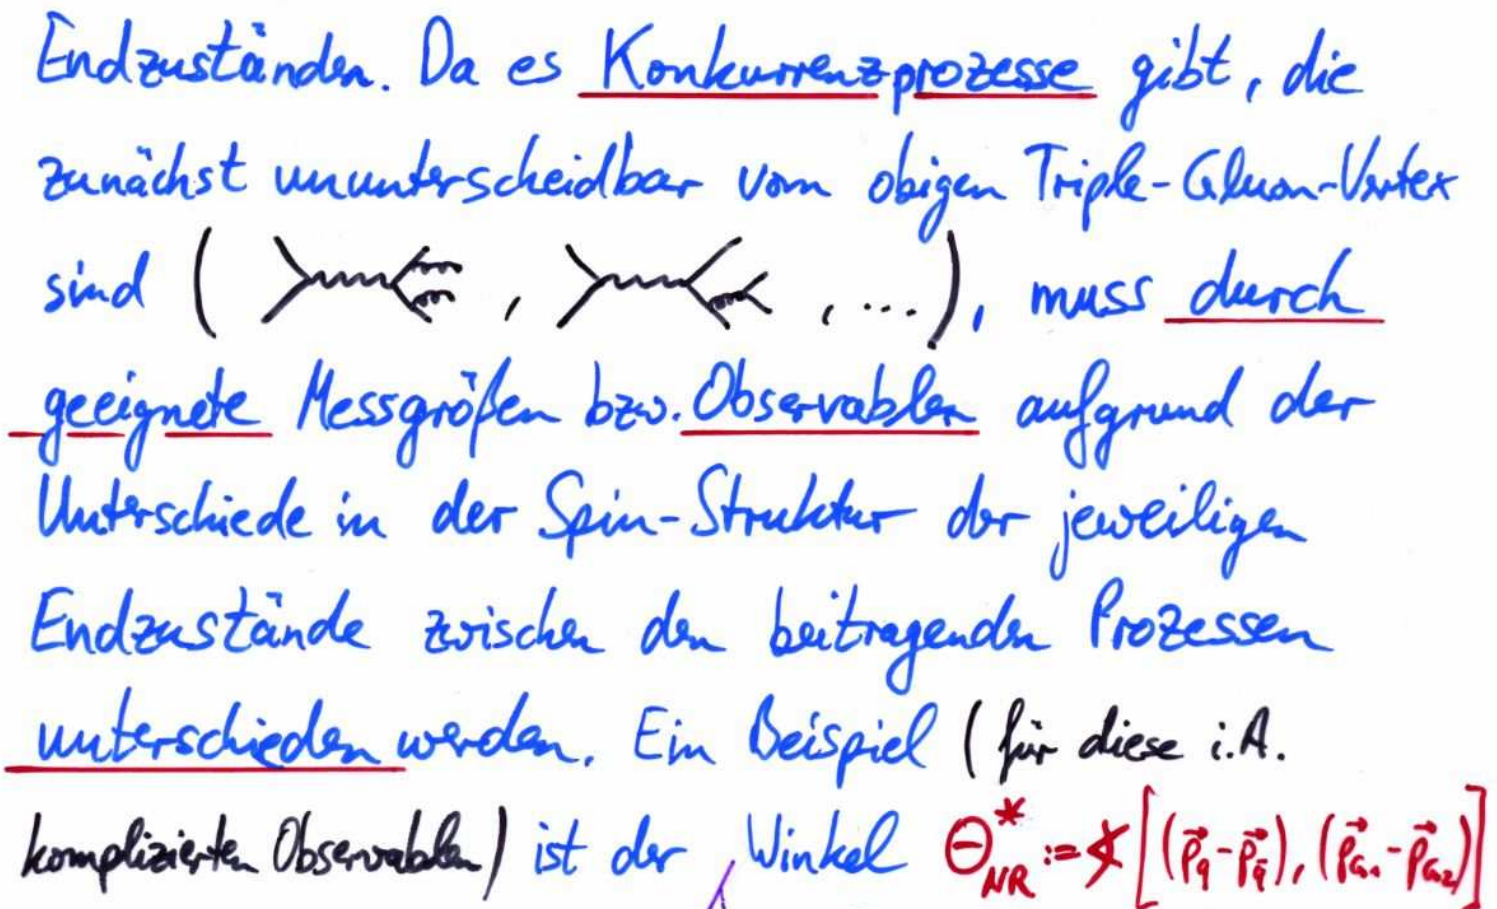 Endzuständen. Da es Konkurrenzprozesse gibt, die
zunächst ununterscheidbar vom obigen Triple-Gluon-Vertex
sind ( , , ...), muss durch
geeignete Messgrößen bzw. Observablen aufgrund der
Unterschiede in der Spin-Struktur der jeweiligen
Endzustände zwischen den beitragenden Prozessen
unterschieden werden. Ein Beispiel (für diese i.A.
komplizierten Observablen) ist der Winkel Θ*_NR := ∢[(p⃗_q - p⃗_q̄), (p⃗_G1 - p⃗_G2)]